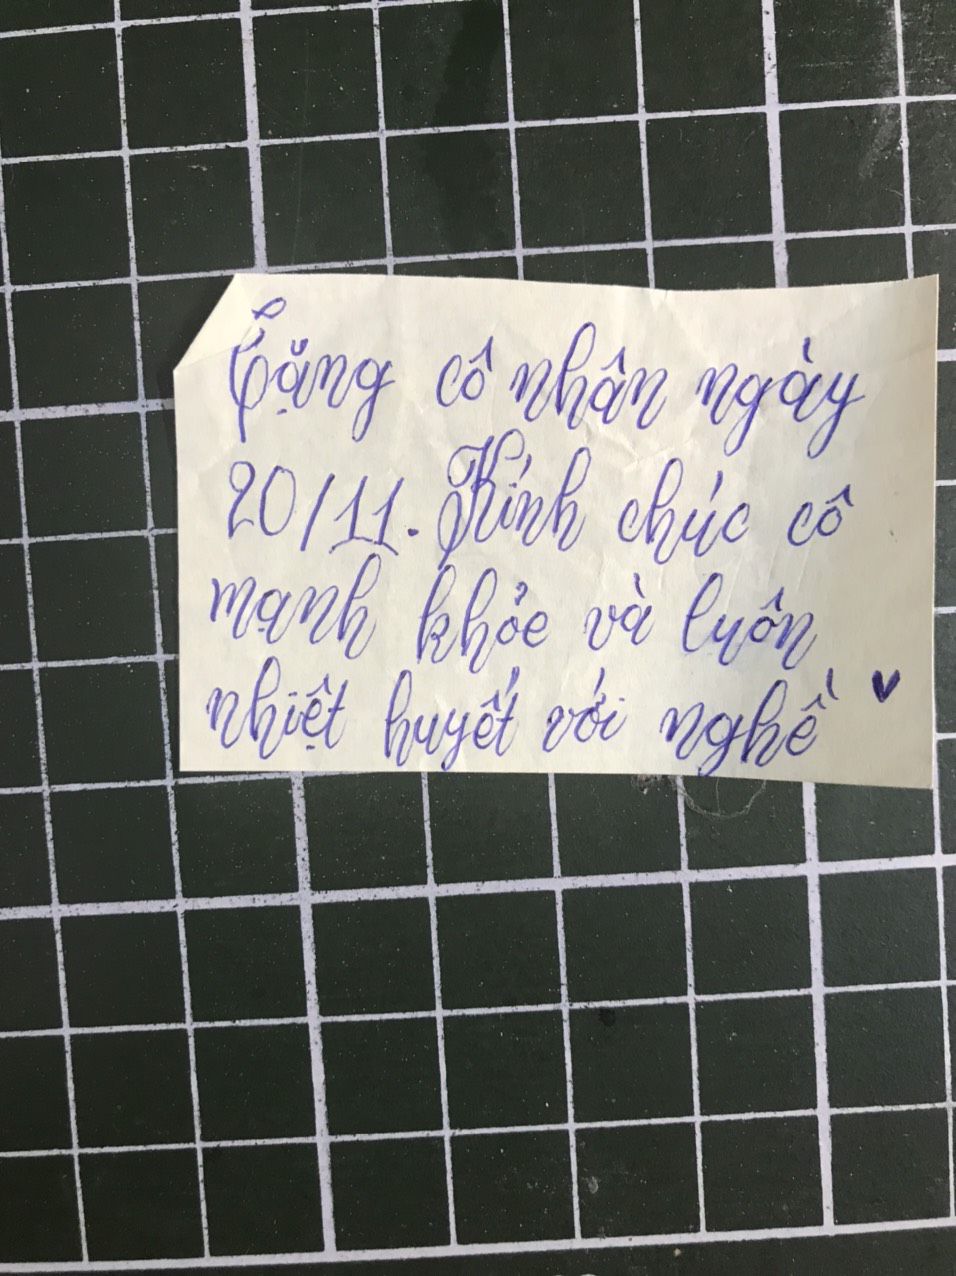 Tặng cô nhân ngày
20/11. Kính chúc cô
mạnh khỏe và luôn
nhiệt huyết với nghề ♥